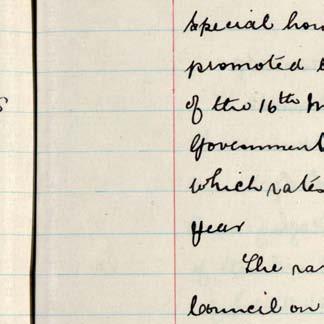 special hou
promoted
of the 16th
Government
which rates
year
The ra
Council on